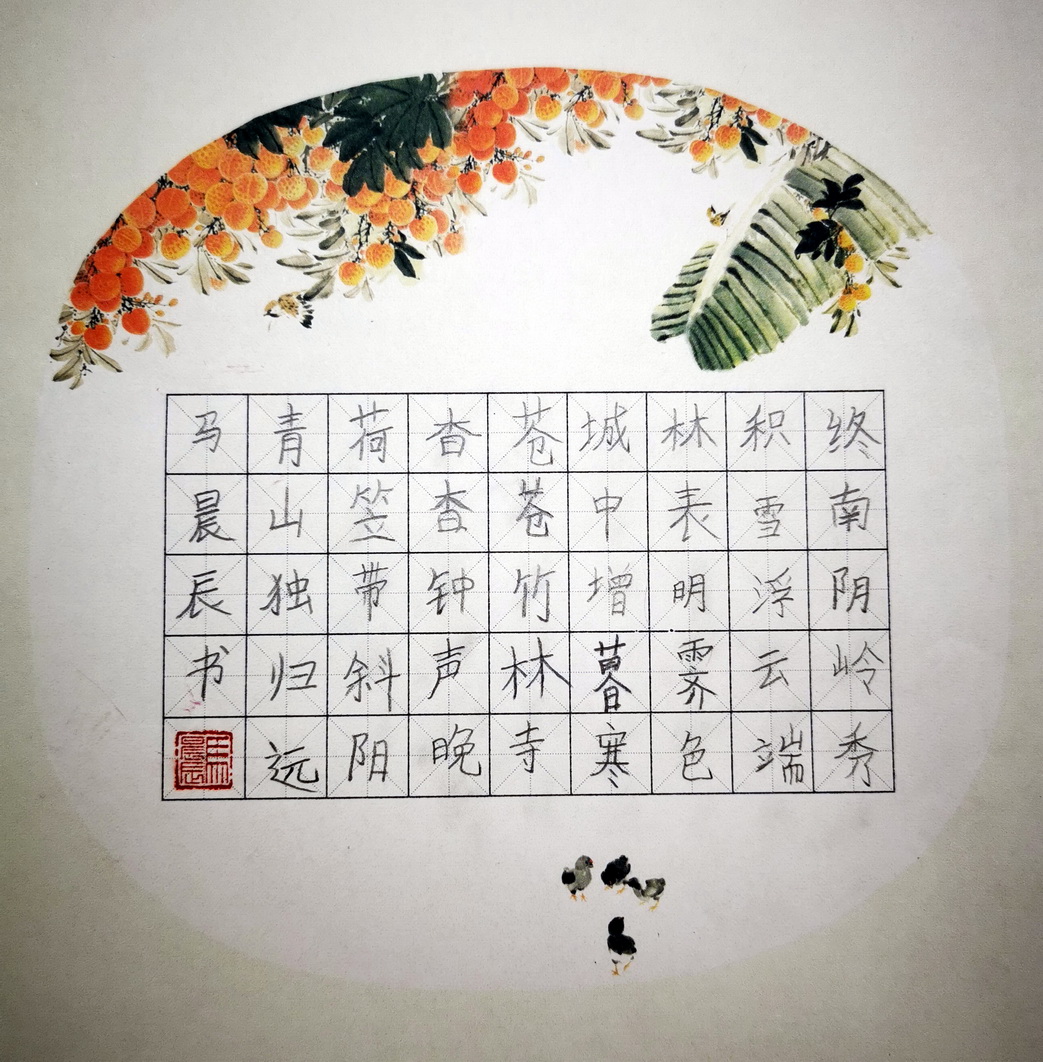 终南阴岭秀
积雪浮云端
林表明霁色
城中增暮寒
苍苍竹林寺
杳杳钟声晚
荷笠带斜阳
青山独归远
马晨辰书